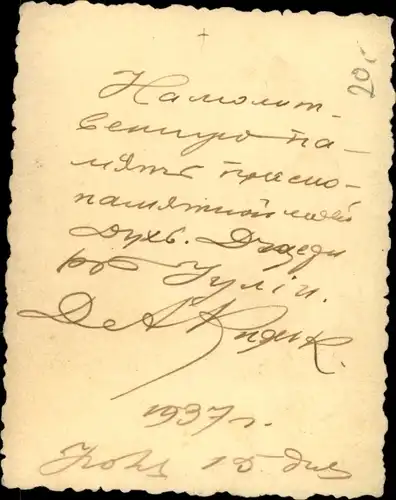 +
20.
На молит-
венную па-
мять присно-
памятной моей
Духв. Дщери
рб Іуліи.
1937 г.
15. дня